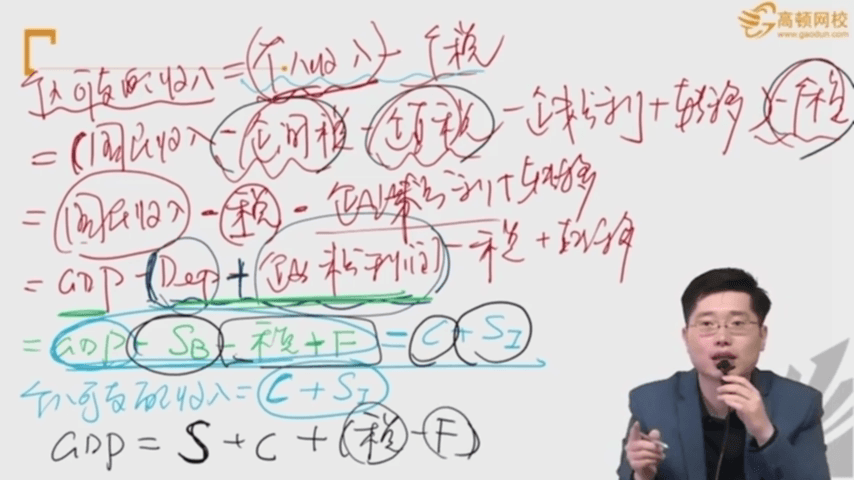 高顿网校
www.gaodun.com
个人可支配收入=(个人收入)-个税
=(国民收入-企间税-企直税-企未分利+转移)-个税
=国民收入-税-企业未分利+转移
=GDP-(Dep+企业未分利润)-税+转移
=GDP-SB-税+F=C+SI
个人可支配收入=C+SI
GDP=S+C+(税-F)